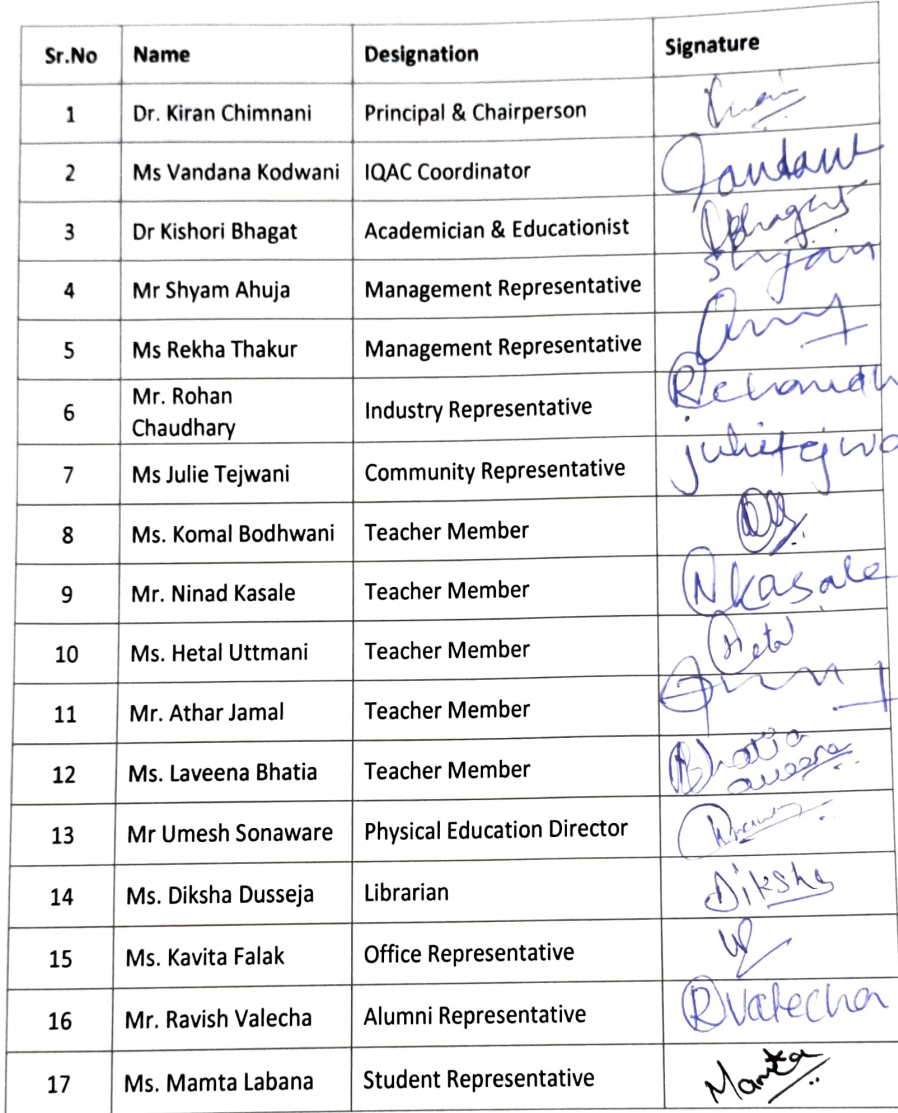 Sr.No Name Designation Signature
1 Dr. Kiran Chimnani Principal & Chairperson
2 Ms Vandana Kodwani IQAC Coordinator Vandana
3 Dr Kishori Bhagat Academician & Educationist Bhagat
4 Mr Shyam Ahuja Management Representative Shyam
5 Ms Rekha Thakur Management Representative
6 Mr. Rohan
Chaudhary Industry Representative
7 Ms Julie Tejwani Community Representative
8 Ms. Komal Bodhwani Teacher Member
9 Mr. Ninad Kasale Teacher Member Nkasale
10 Ms. Hetal Uttmani Teacher Member Hetal
11 Mr. Athar Jamal Teacher Member
12 Ms. Laveena Bhatia Teacher Member Bhatia
13 Mr Umesh Sonaware Physical Education Director
14 Ms. Diksha Dusseja Librarian Diksha
15 Ms. Kavita Falak Office Representative
16 Mr. Ravish Valecha Alumni Representative RValecha
17 Ms. Mamta Labana Student Representative Mamta